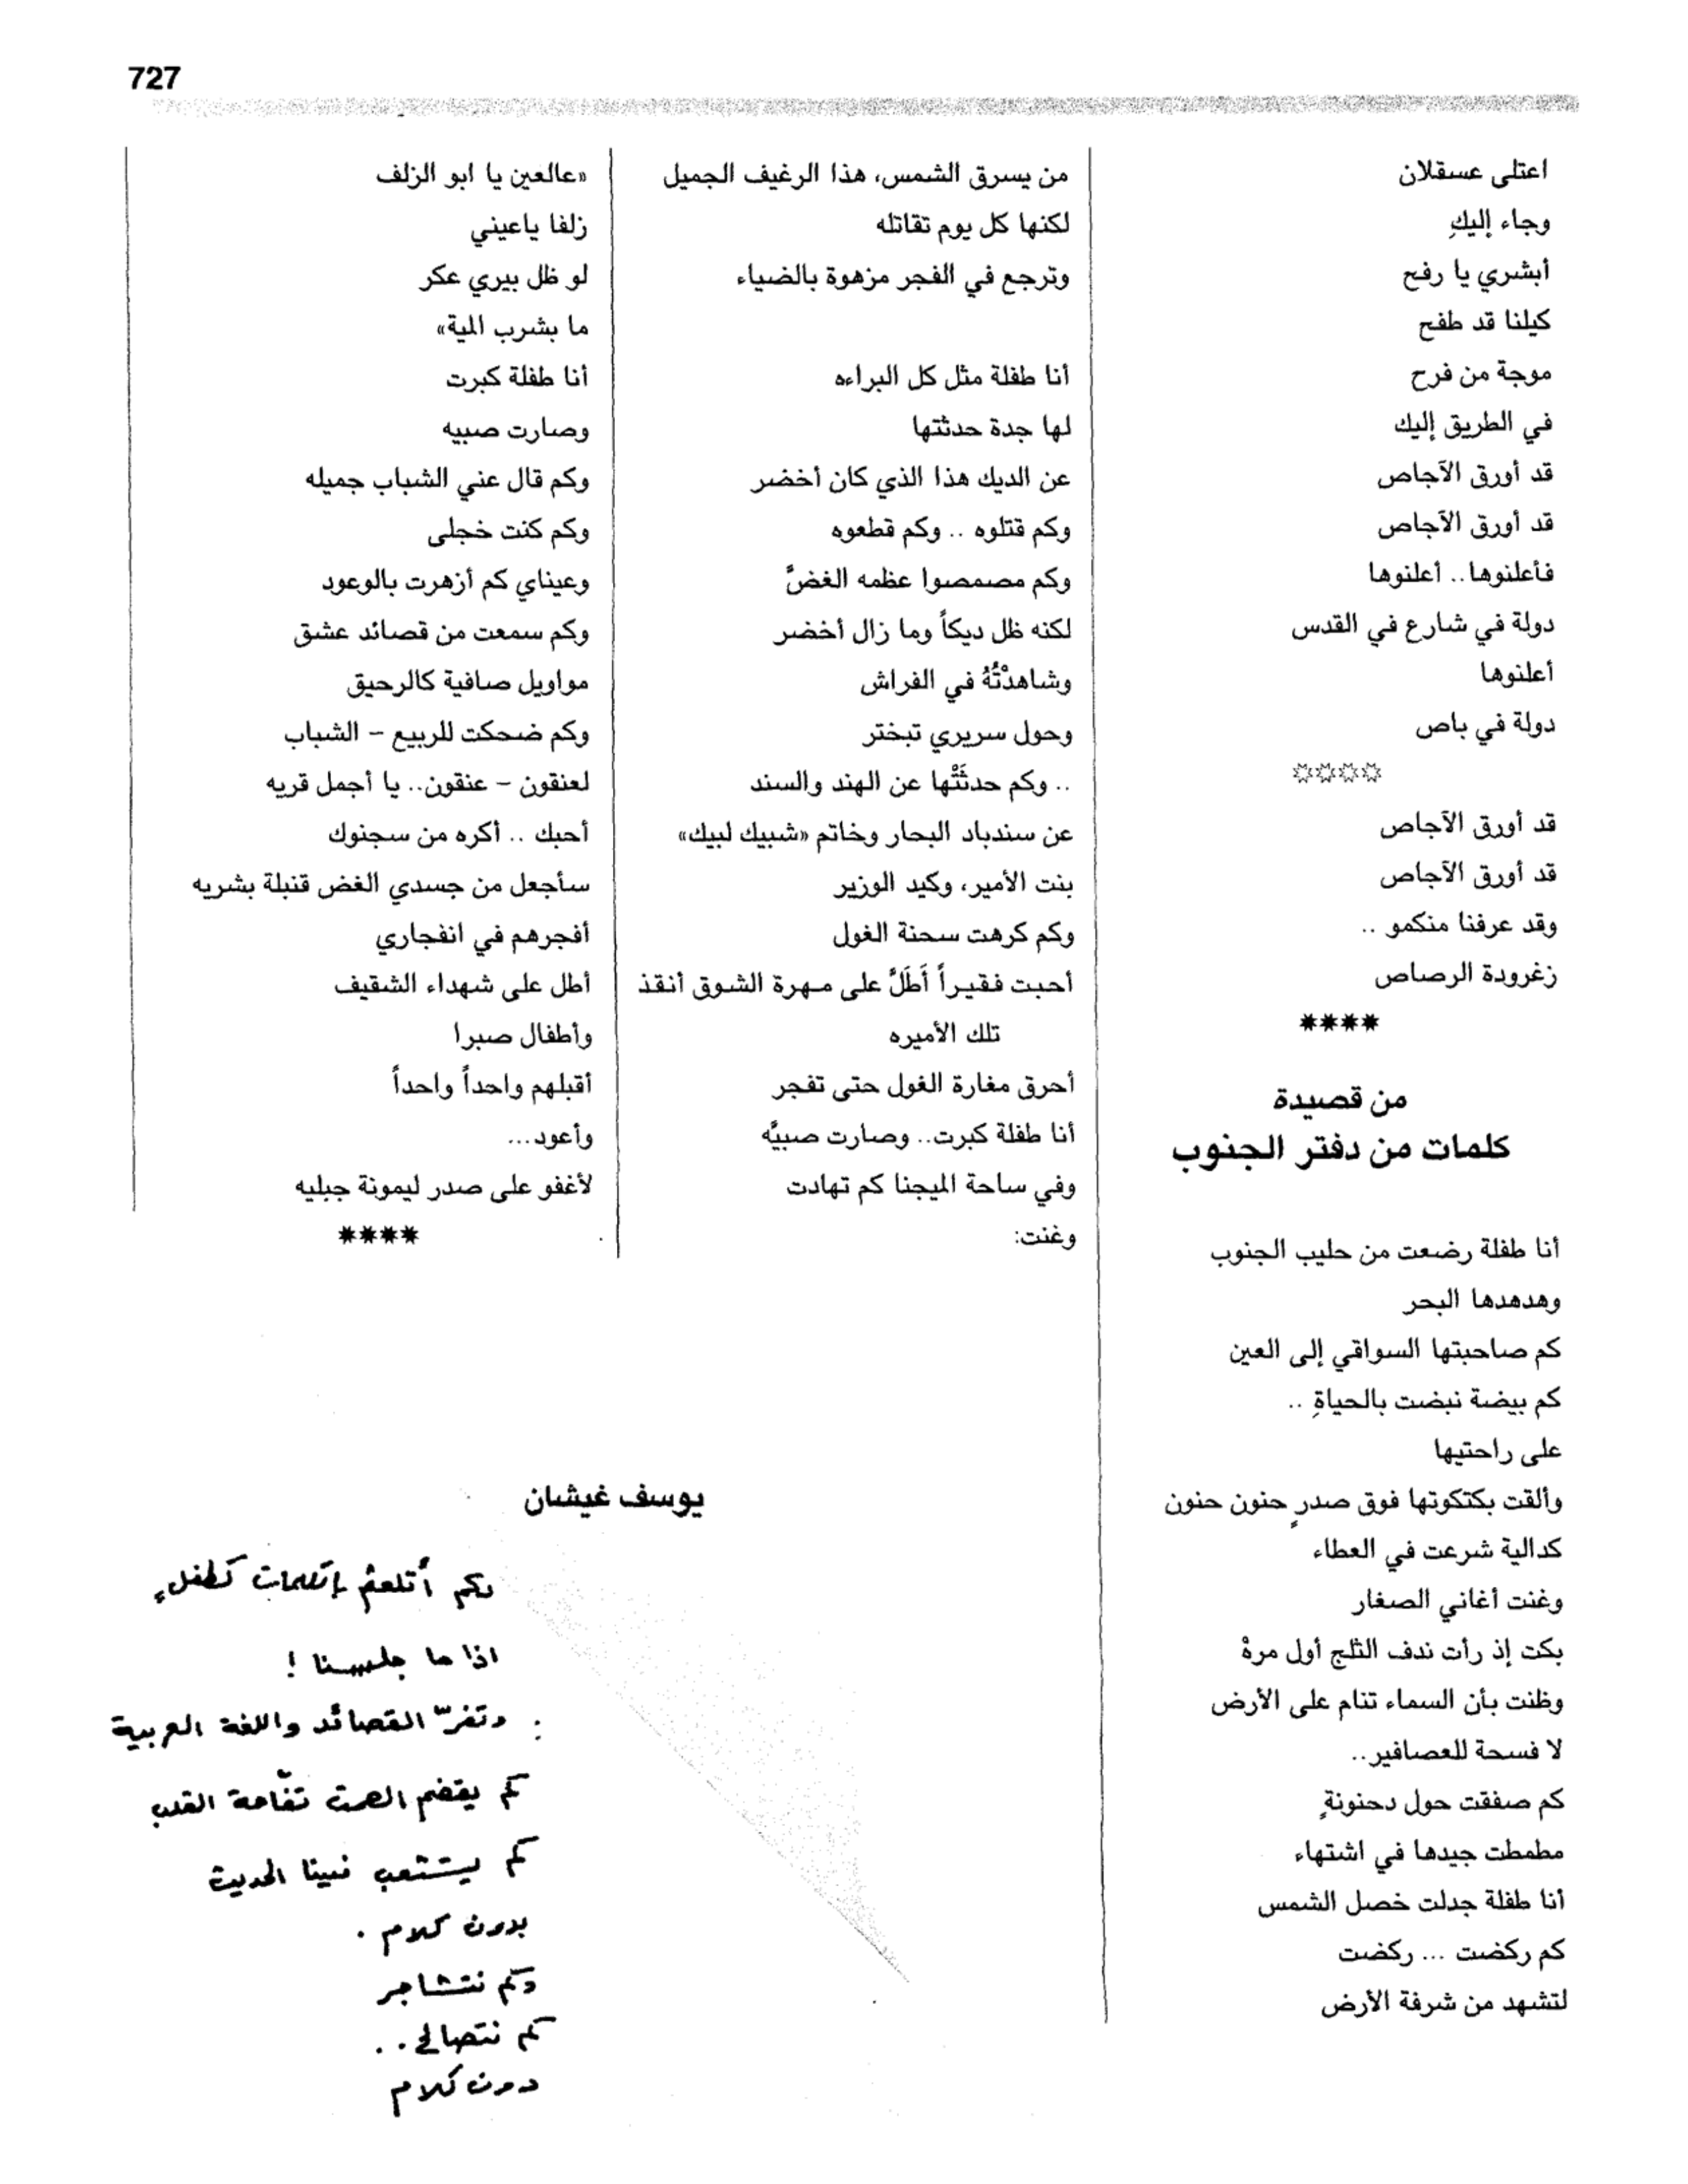 727
اعتلى عسقلان
وجاء إليكِ
أبشري يا رفح
كيلنا قد طفح
موجة من فرح
في الطريق إليك
قد أورق الآجاص
قد أورق الآجاص
فأعلنوها.. أعلنوها
دولة في شارع في القدس
أعلنوها
دولة في باص
☼☼☼☼
قد أورق الآجاص
قد أورق الآجاص
وقد عرفنا منكمو ..
زغرودة الرصاص
****
من قصيدة
كلمات من دفتر الجنوب
أنا طفلة رضعت من حليب الجنوب
وهدهدها البحر
كم صاحبتها السواقي إلى العين
كم بيضة نبضت بالحياةِ ..
على راحتيها
وألقت بكتكوتها فوق صدرٍ حنون حنون
كدالية شرعت في العطاء
وغنت أغاني الصغار
بكت إذ رأت ندف الثلج أول مرهْ
وظنت بأن السماء تنام على الأرض
لا فسحة للعصافير..
كم صفقت حول دحنونةٍ
مطمطت جيدها في اشتهاء
أنا طفلة جدلت خصل الشمس
كم ركضت ... ركضت
لتشهد من شرفة الأرض
من يسرق الشمس، هذا الرغيف الجميل
لكنها كل يوم تقاتله
وترجع في الفجر مزهوة بالضياء
أنا طفلة مثل كل البراءه
لها جدة حدثتها
عن الديك هذا الذي كان أخضر
وكم قتلوه .. وكم قطعوه
وكم مصمصوا عظمه الغضَّ
لكنه ظل ديكاً وما زال أخضر
وشاهدْتُهُ في الفراش
وحول سريري تبختر
.. وكم حدثَتْها عن الهند والسند
عن سندباد البحار وخاتم «شبيك لبيك»
بنت الأمير، وكيد الوزير
وكم كرهت سحنة الغول
أحبت فقيراً أَطَلَّ على مهرة الشوق أنقذ
تلك الأميره
أحرق مغارة الغول حتى تفجر
أنا طفلة كبرت.. وصارت صبيَّه
وفي ساحة الميجنا كم تهادت
وغنت:
«عالعين يا ابو الزلف
زلفا ياعيني
لو ظل بيري عكر
ما بشرب المية»
أنا طفلة كبرت
وصارت صبيه
وكم قال عني الشباب جميله
وكم كنت خجلى
وعيناي كم أزهرت بالوعود
وكم سمعت من قصائد عشق
مواويل صافية كالرحيق
وكم ضحكت للربيع – الشباب
لعنقون – عنقون.. يا أجمل قريه
أحبك .. أكره من سجنوك
سأجعل من جسدي الغض قنبلة بشريه
أفجرهم في انفجاري
أطل على شهداء الشقيف
وأطفال صبرا
أقبلهم واحداً واحداً
وأعود...
لأغفو على صدر ليمونة جبليه
****
يوسف غيشان
وكم أتلعثم بالكلمات كطفلٍ
اذا ما جلسنا !
وتفرّ القصائد واللغة العربية
كم يقضم الصمت تفّاحة القلب
كم يستتعب فينا الحديث
بدون كلام .
وكم نتشاجر
كم نتصالح ..
دون كلام